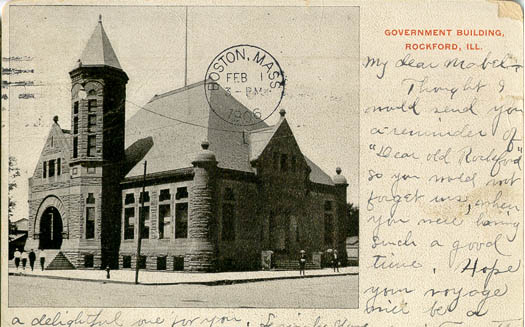 GOVERNMENT BUILDING,
ROCKFORD, ILL.
BOSTON, MASS
FEB 1
3 - PM
1906
My dear Mabel:-
Thought I
would send you
a reminder of
"Dear old Rockford"
so you would not
forget us, when
you were having
such a good
time. Hope
your voyage
will be a
a delightful one for you.